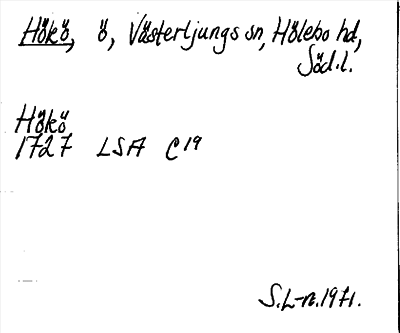 Hökö, ö, Västerljungs sn, Hölebo hd,
Söd.l.
Hökö
1727 LSA C19
S.L-n.1971.